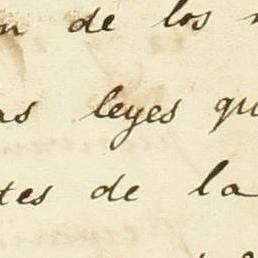 n de los
as leyes qu
tes de la